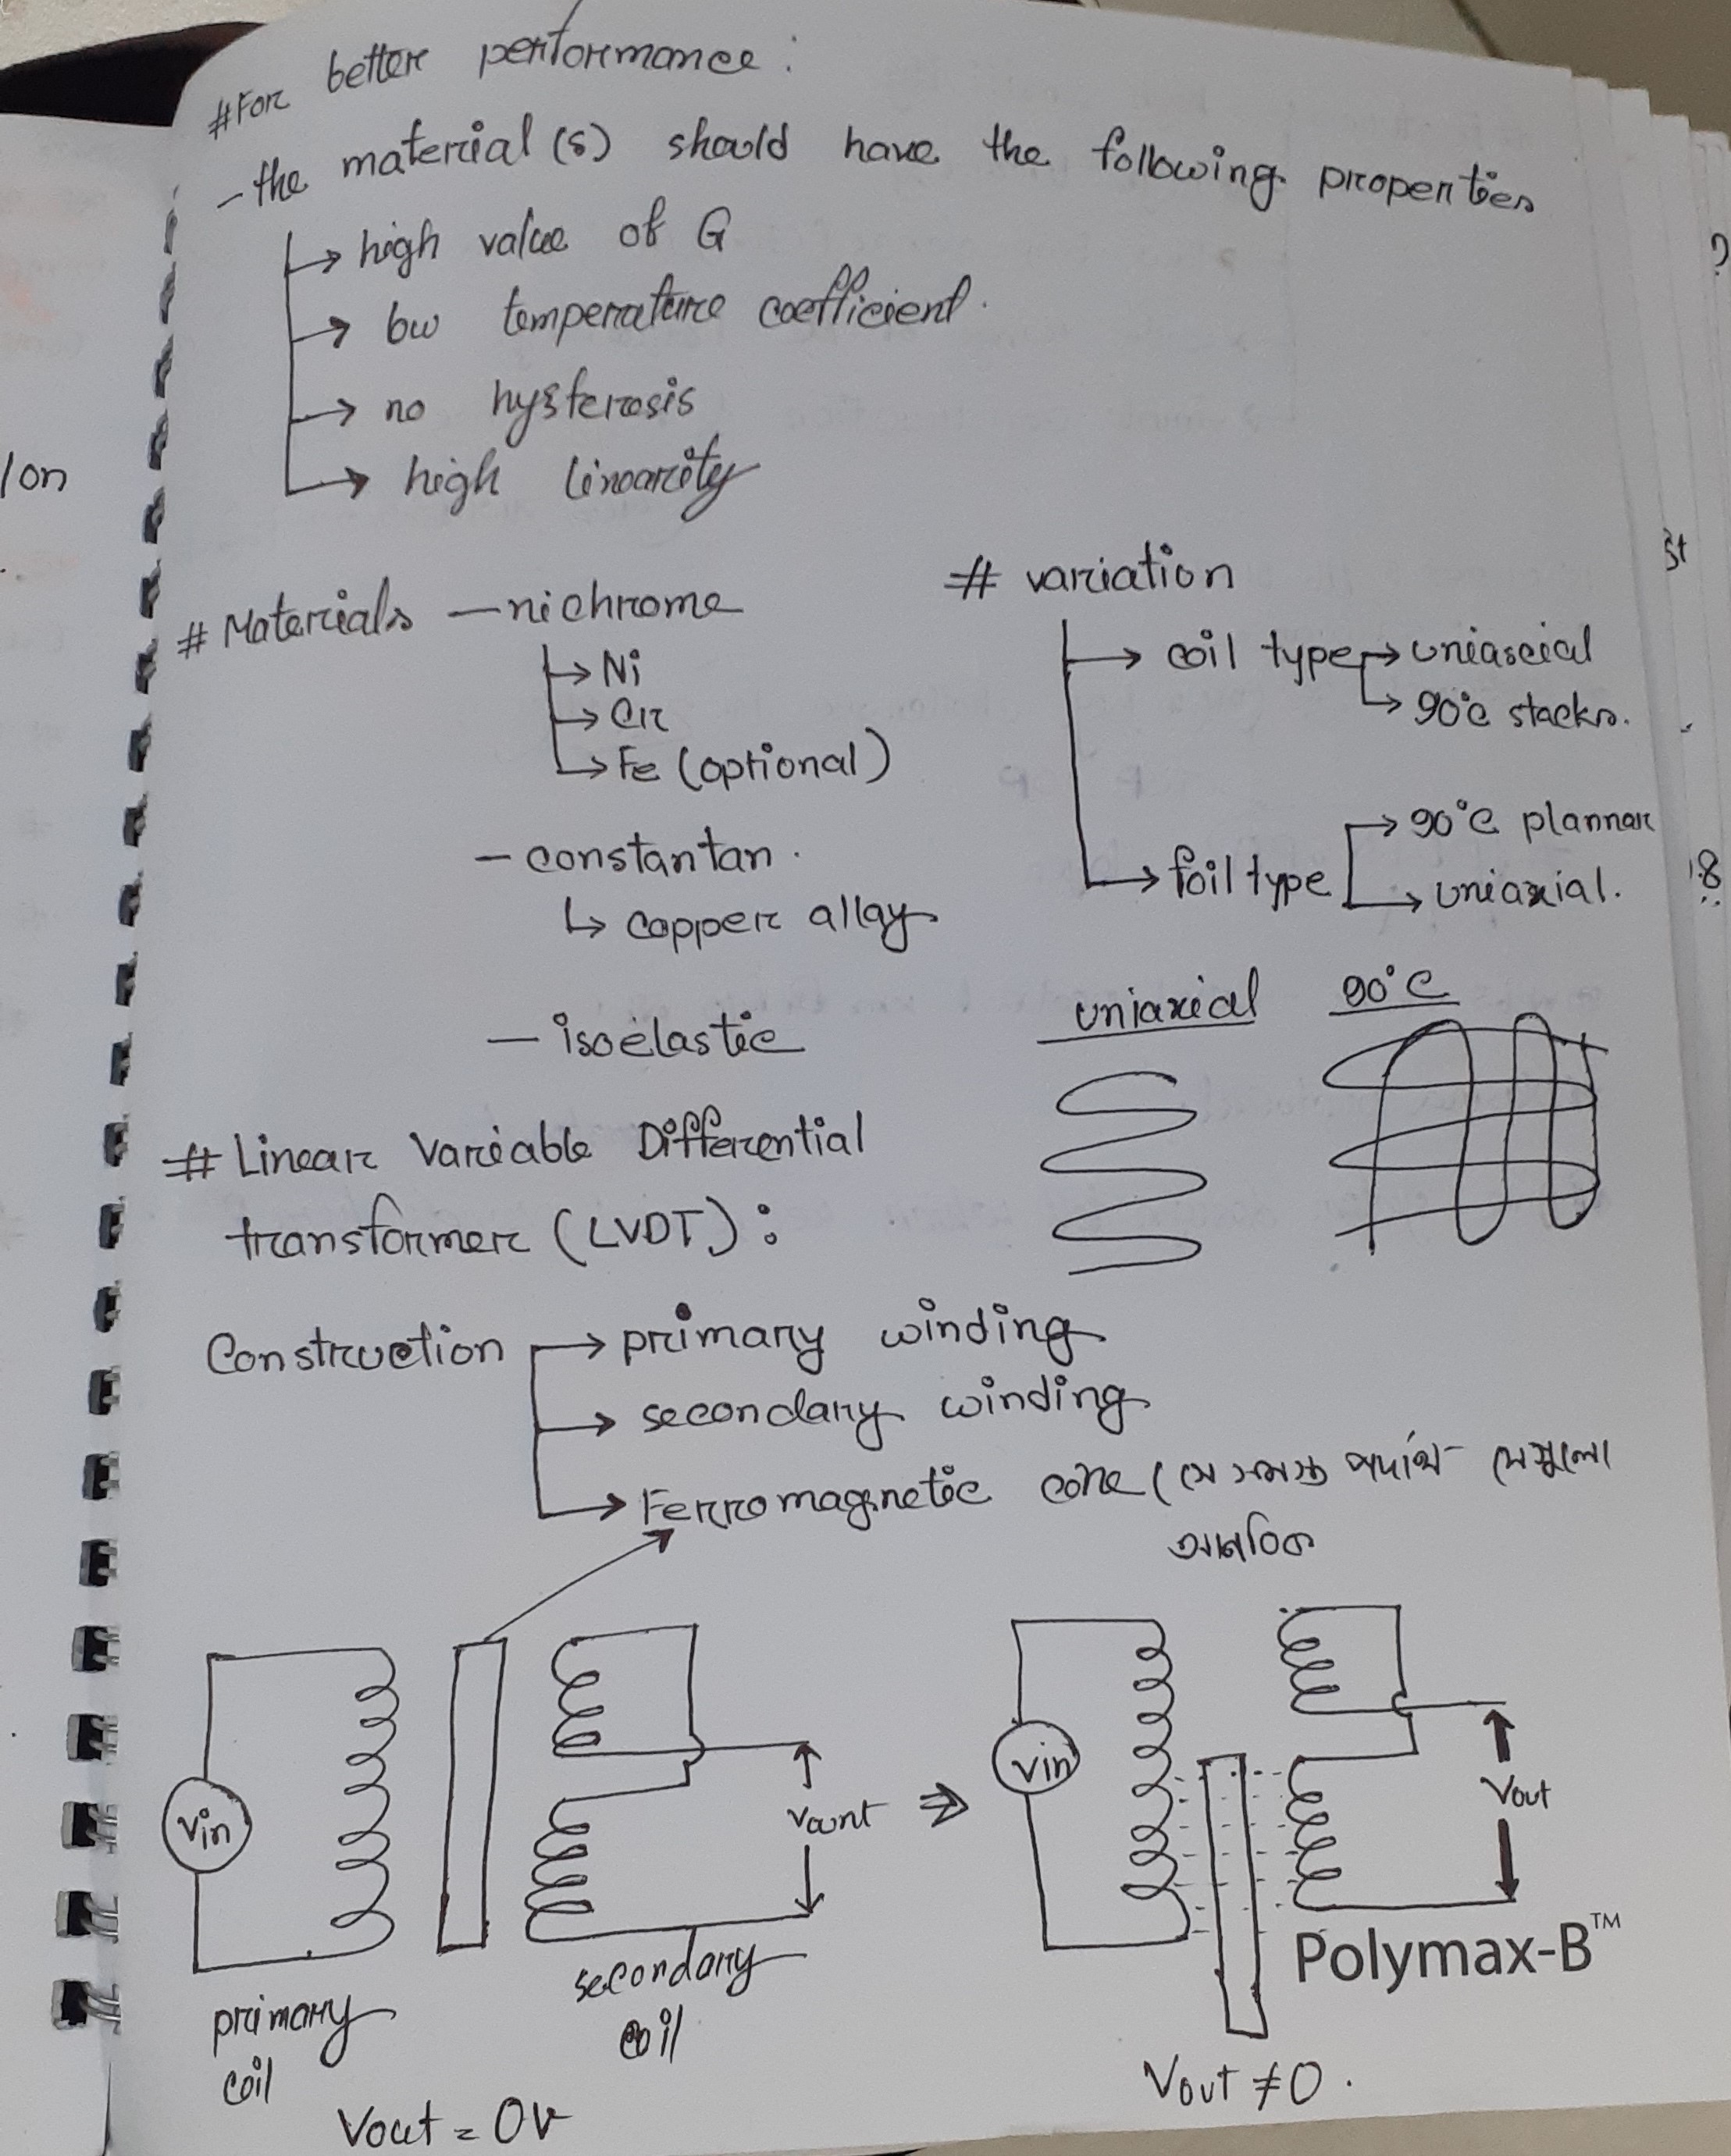 #For better performance:
- the material(s) should have the following properties
→ high value of G
→ low temperature coefficient.
→ no hysterosis
→ high linearity
# Materials — nichrome
→ Ni
→ Cr
→ Fe (optional)
— constantan.
↳ copper allay
— isoelastic
# variation
→ coil type → uniascial
→ 90°c stacks.
→ foil type → 90°c plannar
→ uniaxial.
uniaxial 90°C
# Linear Variable Differential
transformer (LVDT):
Construction → primary winding
→ secondary winding
→ Ferromagnetic core (যে সমস্ত পদার্থ যেগুলো
Vin
Vin
Vout
primary
coil
secondary
coil
Vout = 0V
Vout ≠ 0.
Polymax-B™
lon
st